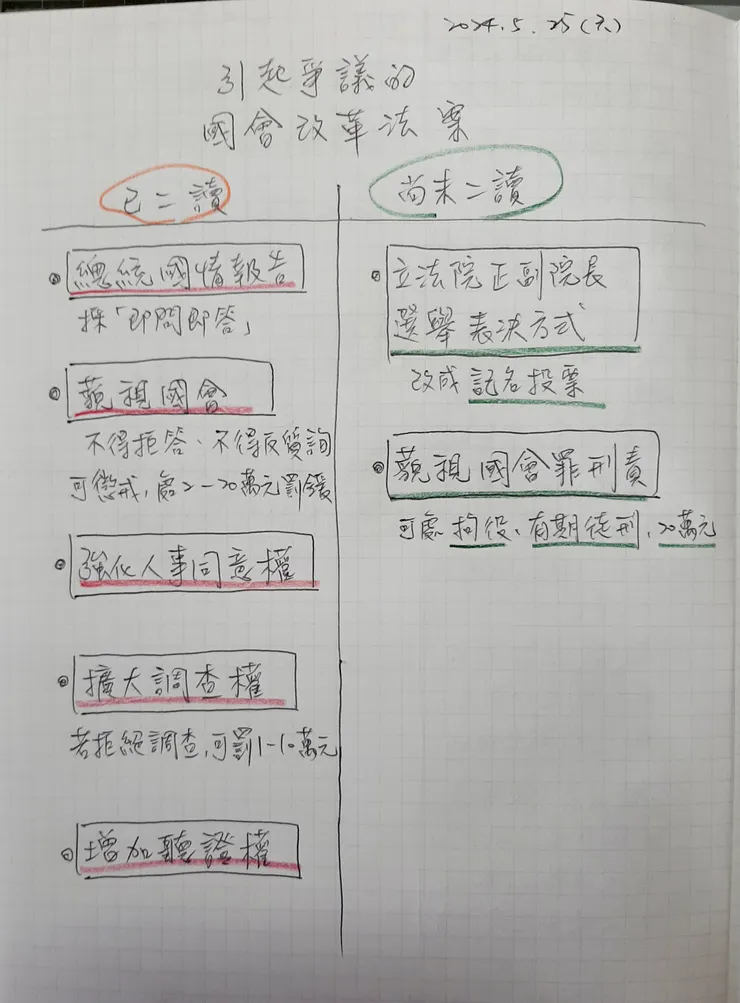 2024.5.25(六)
引起爭議的
國會改革法案
已二讀
總統國情報告
採「即問即答」
藐視國會
不得拒答、不得反質詢
可懲戒,處2-20萬元罰鍰
強化人事同意權
擴大調查權
若拒絕調查,可罰1-10萬元
增加聽證權
尚未二讀
立法院正副院長
選舉表決方式
改成記名投票
藐視國會罪刑責
可處拘役、有期徒刑、20萬元